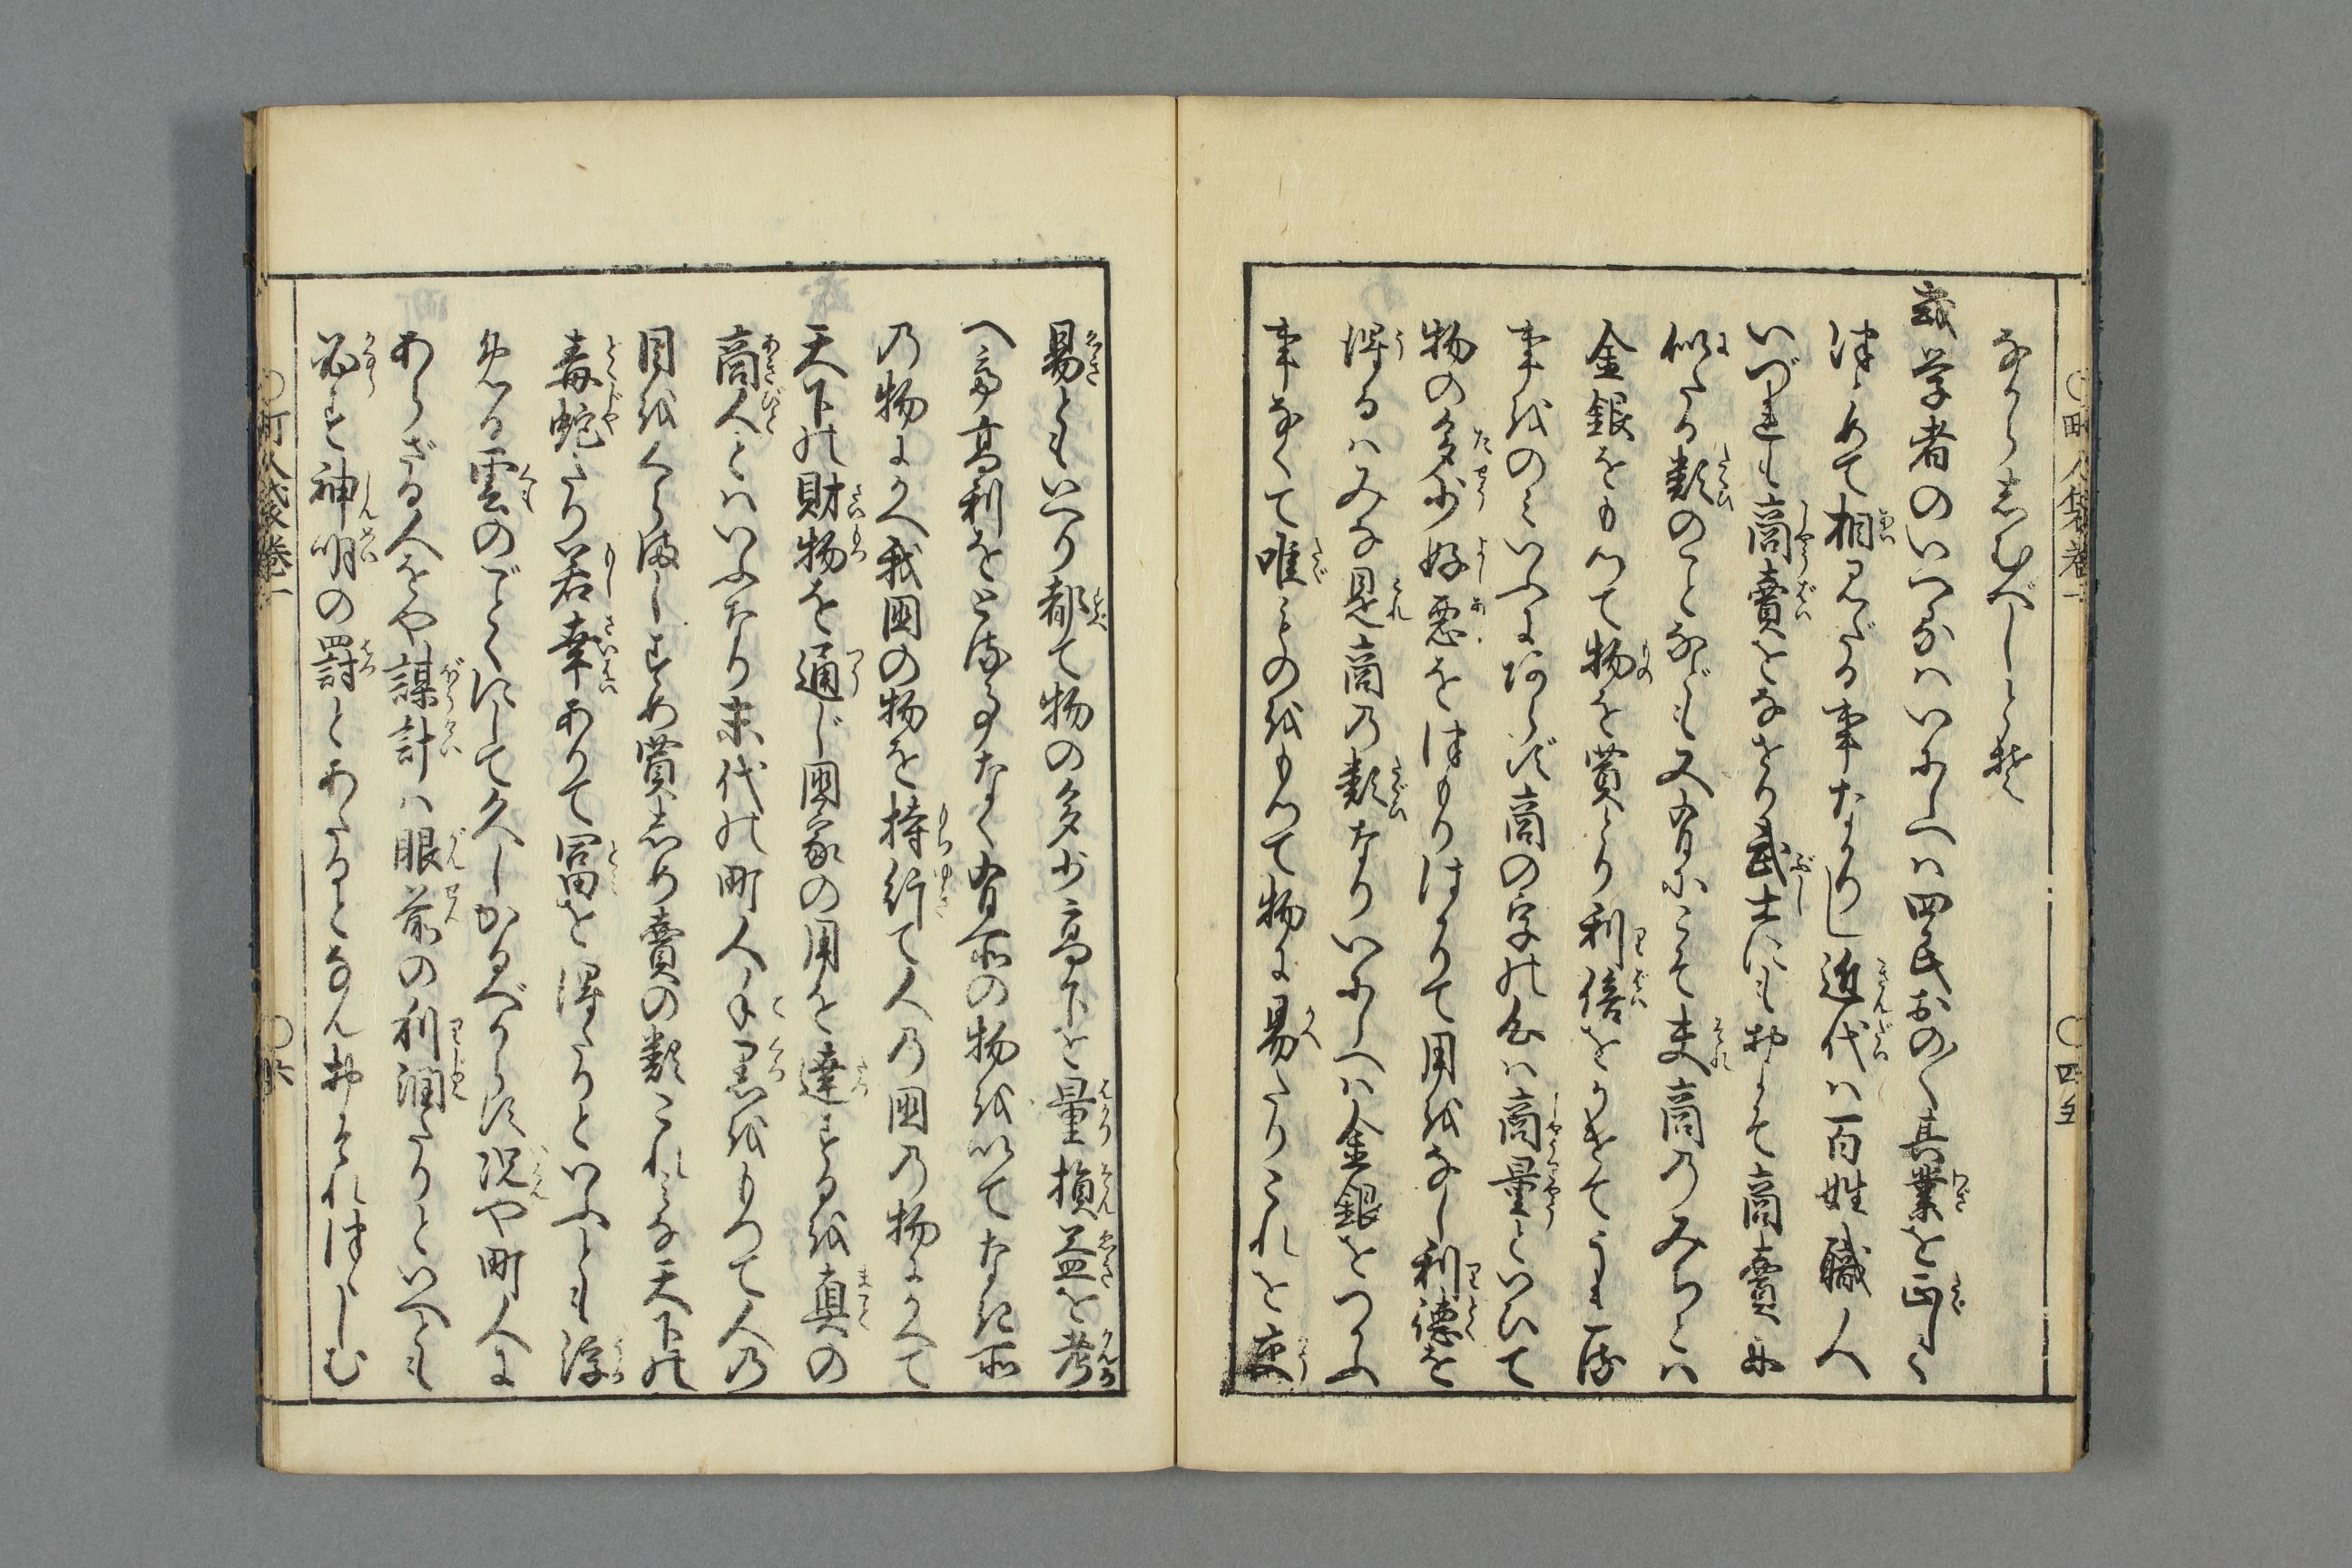 町人袋巻一
四五
ならしむべしとぞ
或学者のいへるはいにしへは四民おの〳〵其業を正しく
つとめて相みだる事なかりし近代は百姓職人
いづれも商賣をなせり武士にもおよそ商賣に
似たる類のことなども又有にこそ夫商のみちとは
金銀をもつて物を買とり利倍をかけてうる一法
事をのみいふにあらず商の字の心は商量といひて
物の多少好悪をつもりはかりて用をなし利徳を
得るはみな是商の類なりいにしへは金銀をつかふ
事なくて唯ものをもつて物に易たりこれを交
易ともいへり都て物の多少高下を量損益を考
へ高利をとる事なく有所の物を以てなき所
の物にかへ我国の物を持行て人の国の物にかへて
天下の財物を通じ国家の用を達するを真の
商人とはいふなり末代の町人は手黒をもつて人の
目をくらましすめ買しめ賣の類これみな天下の
毒蛇たり若幸ありて冨を得たりといふとも浮
める雲のごとくにして久しかるべからず況や町人に
あらざる人をや謀計は眼前の利潤たりといへとも
必ず神明の罰とあたるとなんおそれつゝしむ
町人袋巻一
六